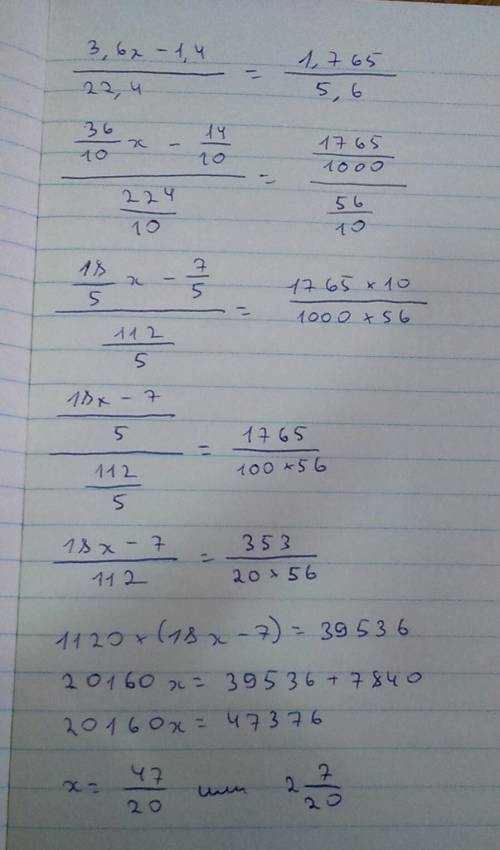 3,6x - 1,4 / 22,4 = 1,765 / 5,6
36/10 x - 14/10 / 224/10 = 1765/1000 / 56/10
18/5 x - 7/5 / 112/5 = 1765 × 10 / 1000 × 56
18x - 7 / 5 / 112/5 = 1765 / 100 × 56
18x - 7 / 112 = 353 / 20 × 56
1120 × (18x - 7) = 39536
20160x = 39536 + 7840
20160x = 47376
x = 47/20 или 2 7/20